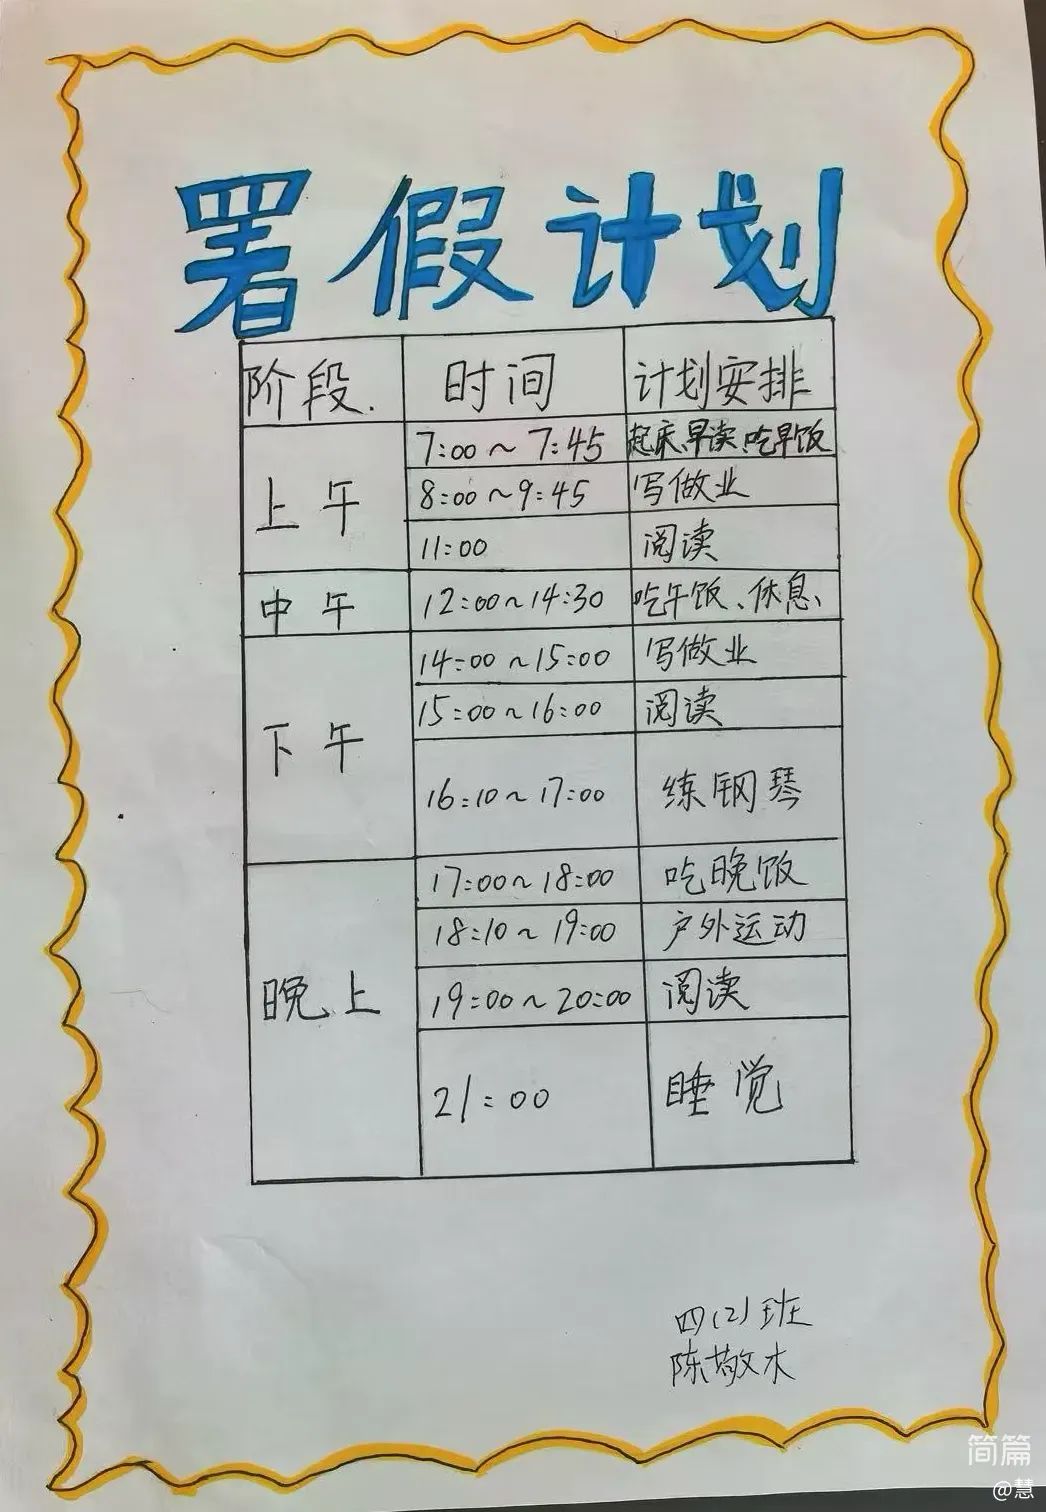 署假计划
阶段. 时间 计划安排
上午 7:00~7:45 起床、早读、吃早饭
8:00~9:45 写做业
11:00 阅读
中午 12:00~14:30 吃午饭、休息、
下午 14:00~15:00 写做业
15:00~16:00 阅读
16:10~17:00 练钢琴
晚上 17:00~18:00 吃晚饭
18:10~19:00 户外运动
19:00~20:00 阅读
21:00 睡觉
四(2)班
陈敬木
简篇
@慧